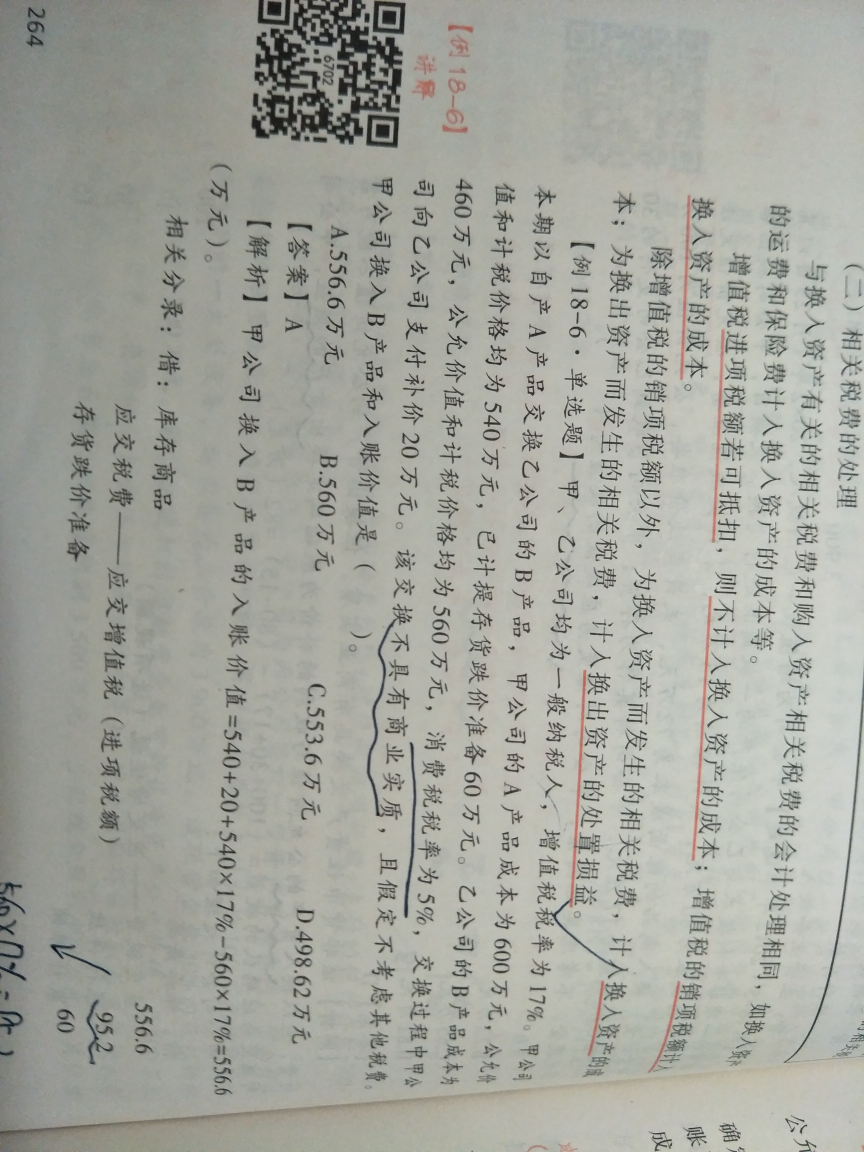 （二）相关税费的处理
与换入资产有关的相关税费和购入资产相关税费的会计处理相同，如换入资产
的运费和保险费计入换入资产的成本等。
增值税进项税额若可抵扣，则不计入换入资产的成本；增值税的销项税额计入
换入资产的成本。
除增值税的销项税额以外，为换入资产而发生的相关税费，计入换入资产的成
本；为换出资产而发生的相关税费，计入换出资产的处置损益。
【例18-6·单选题】甲、乙公司均为一般纳税人，增值税税率为17%。甲公司
本期以自产A产品交换乙公司的B产品，甲公司的A产品成本为600万元，公允价
值和计税价格均为540万元，已计提存货跌价准备60万元。乙公司的B产品成本为
460万元，公允价值和计税价格均为560万元，消费税税率为5%，交换过程中甲公
司向乙公司支付补价20万元。该交换不具有商业实质，且假定不考虑其他税费。
甲公司换入B产品和入账价值是（ ）。
A.556.6万元 B.560万元 C.553.6万元 D.498.62万元
【答案】A
【解析】甲公司换入B产品的入账价值=540+20+540×17%-560×17%=556.6
（万元）。
相关分录：借：库存商品 556.6
应交税费——应交增值税（进项税额） 95.2
存货跌价准备 60
【例18-6】
讲解
6702
264
公允
确
账
成